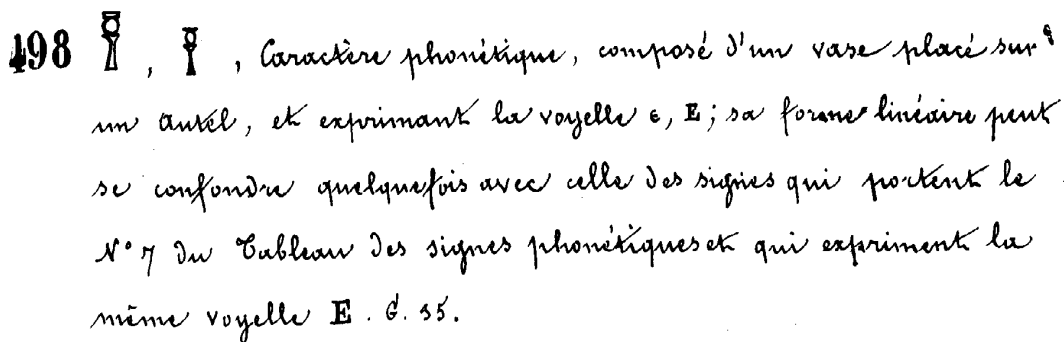 498 , , Caractère phonétique, composé d'un vase placé sur
un autel, et exprimant la voyelle ⲉ, E; sa forme linéaire peut
se confondre quelquefois avec celle des signes qui portent le
N° 7 du Tableau des signes phonétiques et qui expriment la
même voyelle E. G. 35.